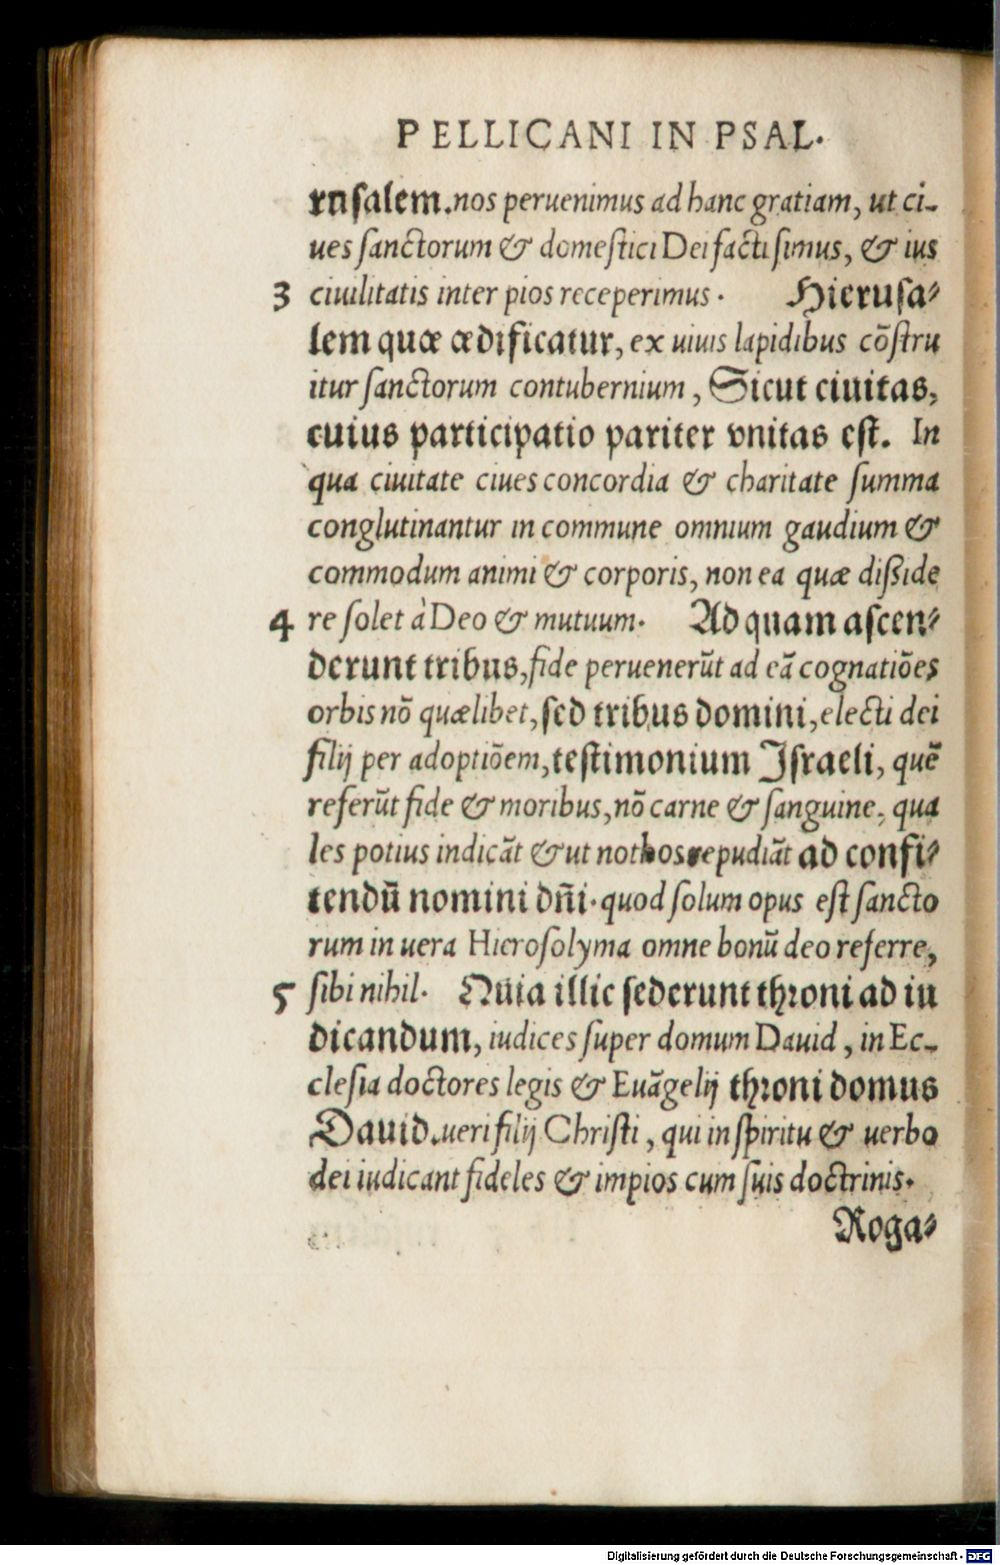 PELLICANI IN PSAL.
rusalem. nos peruenimus ad hanc gratiam, ut ci-
ues sanctorum & domestici Dei facti simus, & ius
3 ciuilitatis inter pios receperimus. Hierusa-
lem quæ ædificatur, ex uiuis lapidibus cōstru
itur sanctorum contubernium, Sicut ciuitas,
cuius participatio pariter vnitas est. In
qua ciuitate ciues concordia & charitate summa
conglutinantur in commune omnium gaudium &
commodum animi & corporis, non ea quæ dißide
4 re solet à Deo & mutuum. Ad quam ascen-
derunt tribus, fide peruenerūt ad eā cognatiōes
orbis nō quælibet, sed tribus domini, electi dei
filij per adoptiōem, testimonium Israeli, quē
referūt fide & moribus, nō carne & sanguine, qua
les potius indicāt & ut nothos repudiāt ad confi-
tendū nomini dñi. quod solum opus est sancto
rum in uera Hierosolyma omne bonū deo referre,
5 sibi nihil. Quia illic sederunt throni ad iu
dicandum, iudices super domum Dauid, in Ec-
clesia doctores legis & Euāgelij throni domus
Dauid. ueri filij Christi, qui in spiritu & uerbo
dei iudicant fideles & impios cum suis doctrinis.
Roga-
Digitalisierung gefördert durch die Deutsche Forschungsgemeinschaft - DFG